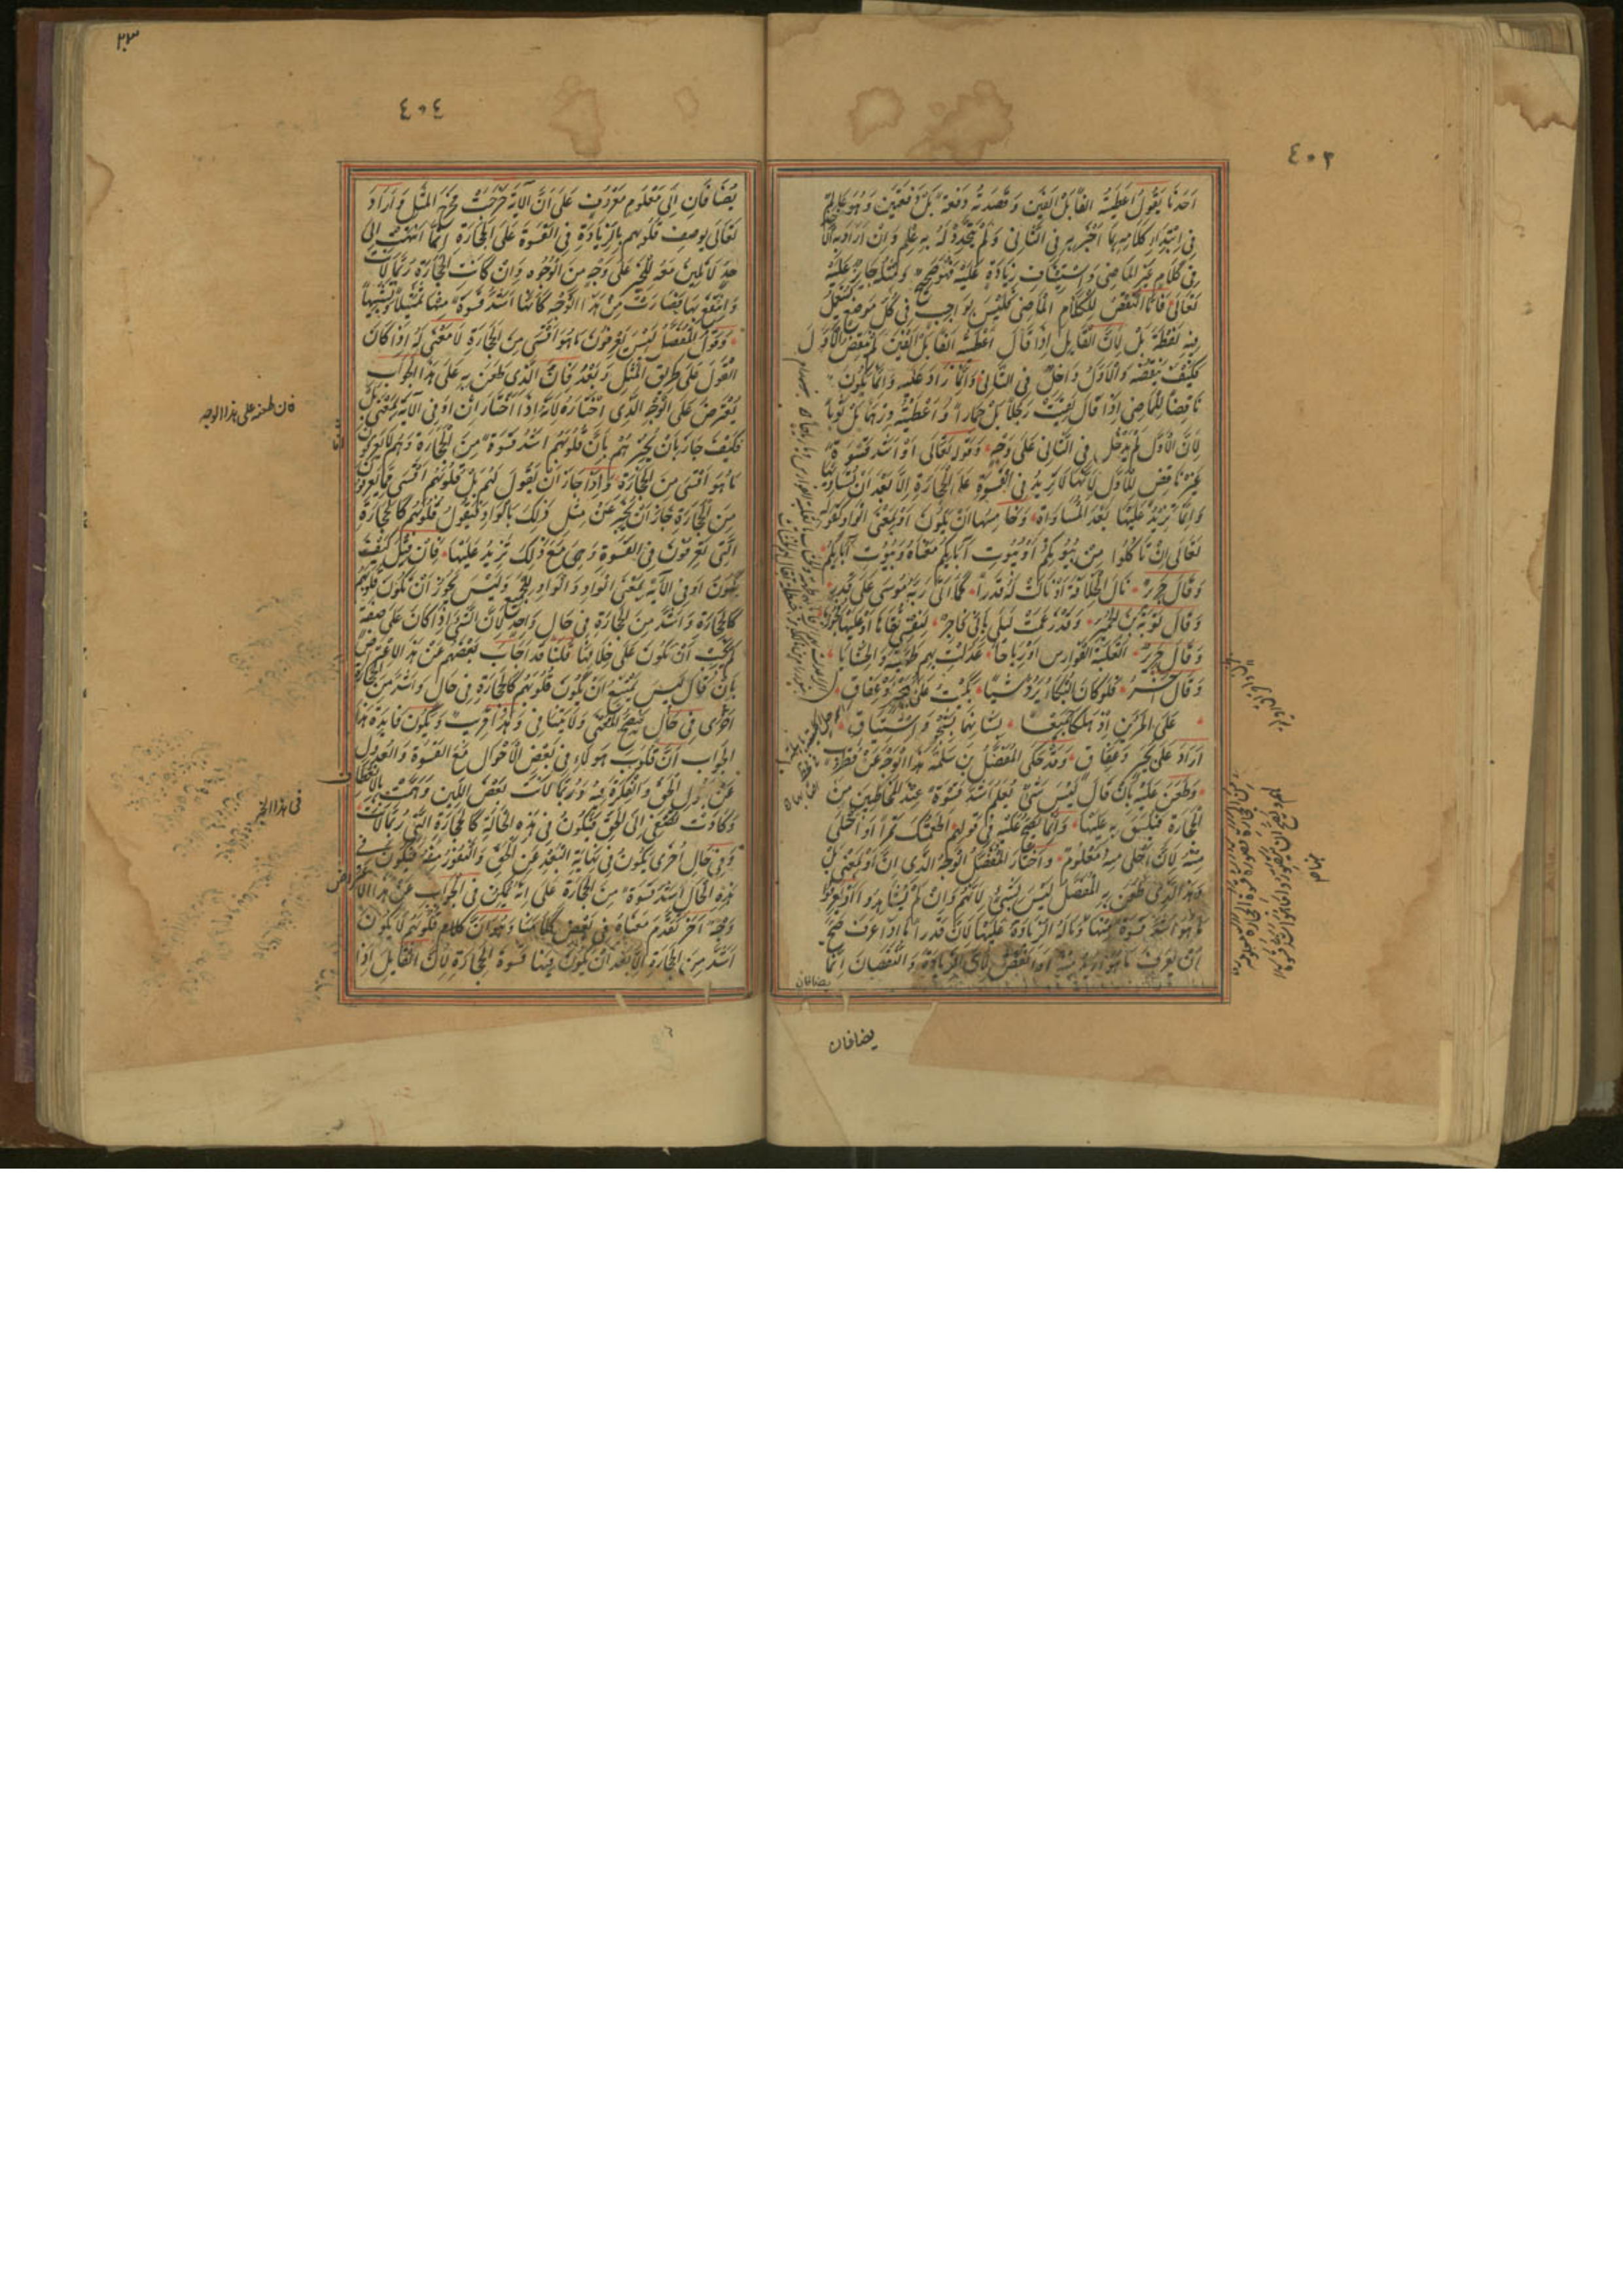 ٤٠٣
احدنا يقول اعطيته الفا بل الفين وقصدته دفعة بل دفعتين وهو عالم
في ابتداء كلامه بما اخبر به في الثاني ولم يتجدد له به علم وان اراد به
في كلام غير الماضي واستيناف زيادة عليه فهو صحيح ومثله جائز عليه
تعالى فاما النقض للكلام الماضي فليس بواجب في كل موضع يستعمل
فيه لفظة بل لان القايل اذا قال اعطيته الفا بل الفين لم ينقض الاول
فكيف ينقضه والاول داخل في الثاني وانما زاد عليه وانما يكون
ناقضا للماضي اذا قال لقيت رجلا بل حمارا واعطيته درهما بل ثوبا
لان الاول لم يدخل في الثاني على وجه وقوله تعالى او اشد قسوة
غير ناقض للاول لانها لا تزيد في القسوة على الحجارة الا بعد ان تساويها
وانما تزيد عليها بعد المساواة وخامسها ان يكون او بمعنى الواو كقوله
تعالى ان تاكلوا من بيوتكم او بيوت آبايكم معناه وبيوت آبايكم
وقال جرير نال الخلافة او كانت له قدرا كما اتى ربه موسى على قدر
وقال توبة بن الحمير وقد زعمت ليلى باني فاجر لنفسي تقاها او عليها فجورها
وقال جرير اثعلبة الفوارس او رياحا عدلت بهم طهية والخشابا
وقال آخر فلو كان البكاء يرد شيئا بكيت على بجير وعفاق
على المرءين اذ هلكا جميعا بشانهما بشجو واشتياق
اراد على بجير وعفاق وقد حكى المفضل بن سلمة هذا الوجه عن قطرب
وطعن عليه بان قال ليس شئ يعلم اشد قسوة عند المخاطبين من
الحجارة فينسق به عليها وانما يصح عليه في قولهم اطعمتك تمرا او احلى
منه لان احلى منه معلوم واختار المفضل الوجه الذي ان او بمعنى بل
وهذا الذي طعن به المفضل ليس بشئ لانهم وان لم يشاهدوا او يعرفوا
ما هو اشد قسوة منها وماله الزيادة عليها لان قدرا ما اذا عرف صح
ان يعرف ما هو ازيد منه او انقص لان الزيادة والنقصان انما
يضافان
يضافان
٤٠٤
يضافان الى معلوم معروف على ان الآية خرجت مخرج المثل واراد
تعالى بوصف قلوبهم بالزيادة في القسوة على الحجارة انها انتهت الى
حد لا تلين معه للخير على وجه من الوجوه وان كانت الحجارة ربما لانت
وانتفع بها فصارت من هذا الوجه كانها اشد قسوة منها تمثيلا وتشبيها
وقول المفضل ليس يعرفون ما هو اقسى من الحجارة لا معنى له اذا كان
القول على طريق المثل وبعد فان الذي طعن به على هذا الجواب
يعترض على الوجه الذي اختاره لانه اذا اختار ان او في الآية بمعنى بل
فكيف جاز بان يخبرهم بان قلوبهم اشد قسوة من الحجارة وهم لا يعرفون
ما هو اقسى من الحجارة واذا جاز ان يقول لهم بل قلوبهم اقسى مما يعرفون
من الحجارة جاز ان يخبر عن مثل ذلك بالواو فيقول قلوبهم كالحجارة
التي تعرفون في القسوة وهي مع ذلك تزيد عليها فان قيل كيف
يكون او في الآية بمعنى الواو والواو للجمع وليس يجوز ان تكون قلوبهم
كالحجارة واشد من الحجارة في حال واحد لان الشئ اذا كان على صفة
لم يجب ان يكون على خلافها قلنا قد اجاب بعضهم عن هذا الاعتراض
بان قال ليس يمتنع ان يكون قلوبهم كالحجارة في حال واشد من الحجارة
اخرى في حال فيصح المعنى ولا يتنافى وهذا قريب ويكون فايدة هذا
الجواب ان قلوب هولاء في بعض الاحوال مع القسوة والعدول
عن قبول الحق والفكرة فيه وربما لانت بعض اللين وهمت بالانعطاف
وكادت تصغي الى الحق فتكون في هذه الحالة كالحجارة التي ربما لانت
وفي حال اخرى يكون في نهاية البعد عن الحق والنفور منه فتكون في
هذه الحال اشد قسوة من الحجارة على انه يمكن في الجواب عن هذا الاعتراض
وجه آخر تقدم معناه في بعض كلامنا وهو ان قلوبهم لا يكون
اشد من الحجارة الا بعد ان يكون فيها قسوة الحجارة لان القايل اذا
فان طعنه على هذا الوجه